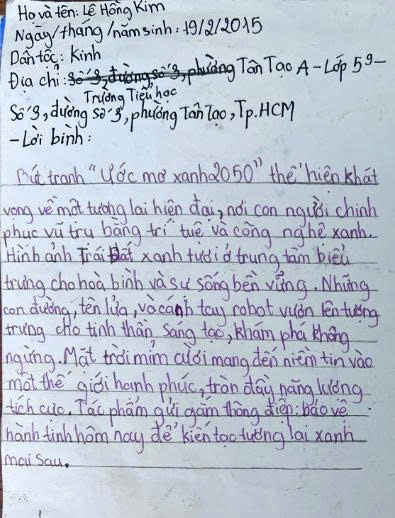 Họ và tên: Lê Hồng Kim
Ngày/tháng/năm sinh: 19/2/2015
Dân tộc: Kinh
Địa chỉ: Số 3, đường số 3, phường Tân Tạo A - Lớp 5⁹ -
Trường Tiểu học
Số 3, đường số 3, phường Tân Tạo, Tp.HCM
- Lời bình:
Bức tranh "Ước mơ xanh 2050" thể hiện khát
vọng về một tương lai hiện đại, nơi con người chinh
phục vũ trụ bằng trí tuệ và công nghệ xanh.
Hình ảnh Trái Đất xanh tươi ở trung tâm biểu
trưng cho hoà bình và sự sống bền vững. Những
con đường, tên lửa, và cánh tay robot vươn lên tượng
trưng cho tinh thần sáng tạo, khám phá không
ngừng. Mặt trời mỉm cười mang đến niềm tin vào
một thế giới hạnh phúc, tràn đầy năng lượng
tích cực. Tác phẩm gửi gắm thông điệp: bảo vệ
hành tinh hôm nay để kiến tạo tương lai xanh
mai sau.